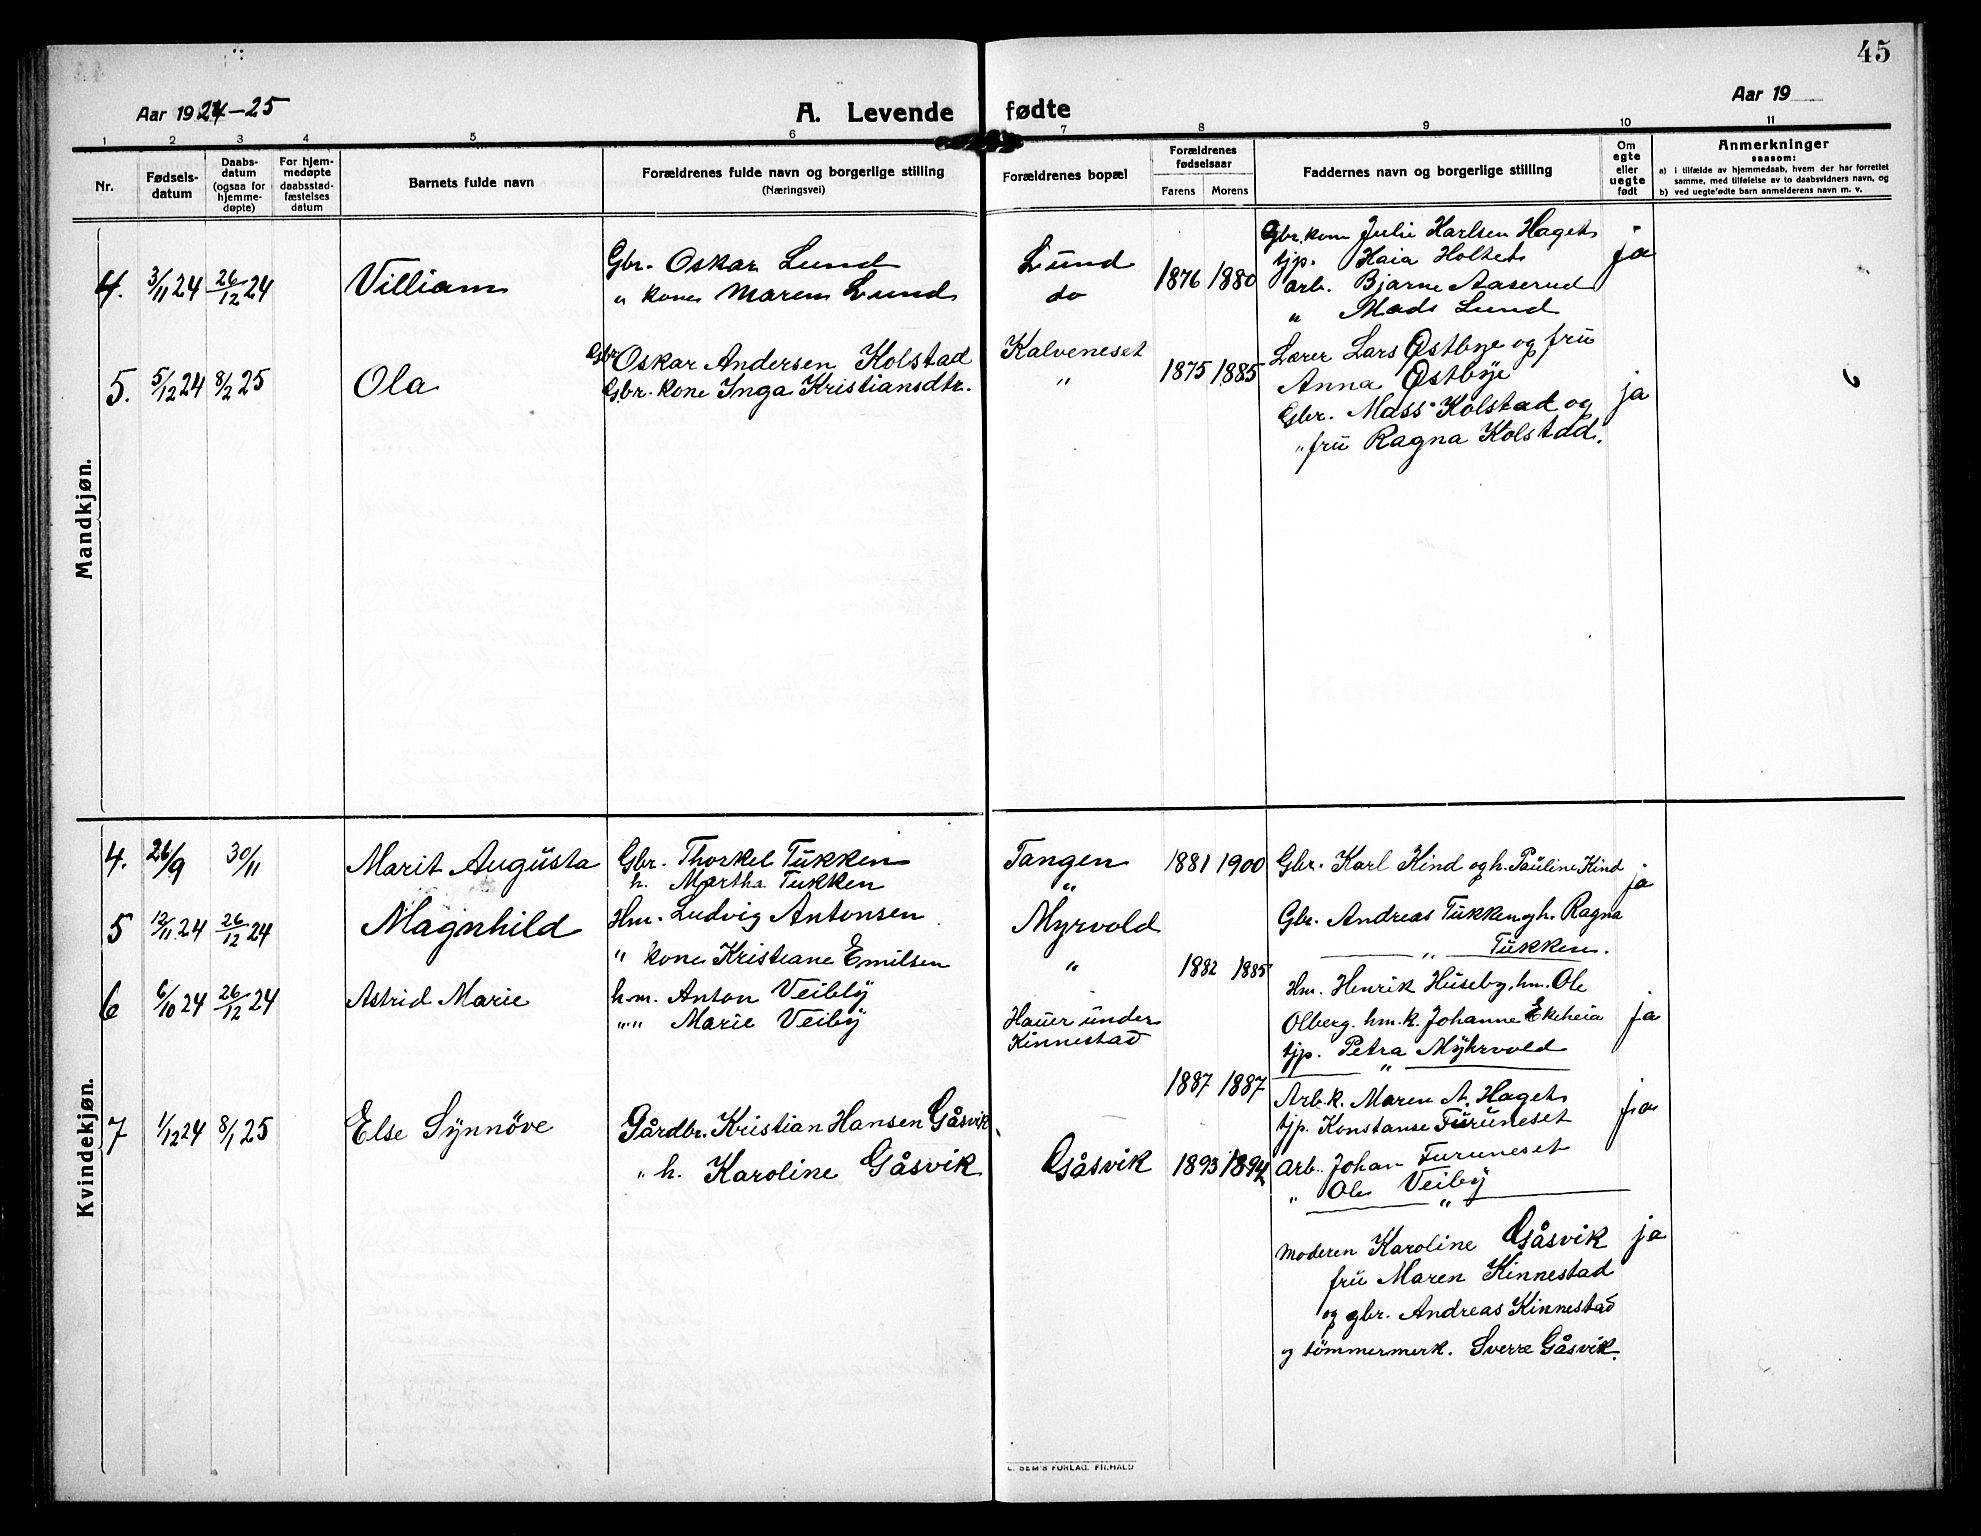 45
Aar 1924-25
A. Levende fødte
Aar 19
1 2 3 4 5 6 7 8 9 10 11
Nr.
Fødsels-
datum
Daabs-
datum
(ogsaa for
hjemme-
døpte)
For hjem-
medøpte
daabsstad-
fæstelses
datum
Barnets fulde navn
Forældrenes fulde navn og borgerlige stilling
(Næringsvei)
Forældrenes bopæl
Forældrenes
fødselsaar
Farens Morens
Faddernes navn og borgerlige stilling
Om
egte
eller
uegte
født
Anmerkninger
saasom:
a) i tilfælde av hjemmedaab, hvem der har forrettet
samme, med tilføielse av to daabsvidners navn, og
b) ved uegtefødte barn anmelderens navn m. v.
Mandkjøn.
4. 3/11 24 26/12 24 Villiam
Gbr. Oskar Lund
" kone Maren Lund
Lund
do
1876 1880
Gbr. kone Julie Karlsen Haget
tjp. Kaia Holtet
arb. Bjarne Aaserud
" Mads Lund
ja
5. 5/12 24 8/2 25 Ola
Gbr Oskar Andersen Kolstad
Gbr. kone Inga Kristiansdtr.
Kalveneset
"
1875 1885
Lærer Lars Østbye og fru
Anna Østbye
Gbr. Mass Kolstad og
" fru Ragna Kolstad.
ja
6
Kvindekjøn.
4. 26/9 30/11 Marit Augusta
Gbr. Thorkel Tukken
h. Martha Tukken
Tangen
"
1881 1900
Gbr. Karl Kind og h. Pauline Kind
ja
Gbr. Andreas Tukken og h. Ragna
" Tukken.
5 12/11 24 26/12 24 Magnhild
Hm. Ludvig Antonsen
" kone Kristiane Emilsen
Myrvold
"
1882 1885
Hm. Henrik Huseby, hm. Ole
Olberg. hm. k. Johanne Ekeheia
tjp. Petra Myhrvold
"
ja
6 6/10 24 26/12 24 Astrid Marie
hm. Anton Veibly
" " Marie Veiby
Hauer under
Kinnestad
1887 1887
Arb. k. Maren A. Haget
tjp. Konstanse Furuneset
Arb. Johan Furuneset
" Ole Veiby
"
ja
7 1/12 24 8/1 25 Else Synnöve
Gårdbr. Kristian Hansen Gåsvik
" h. Karoline Gåsvik
Gåsvik
1893 1894
Moderen Karoline Gåsvik
fru Maren Kinnestad
og gbr. Andreas Kinnestad
og tömmermerk. Sverre Gåsvik.
ja
E. SEM'S FORLAG, FR.HALD